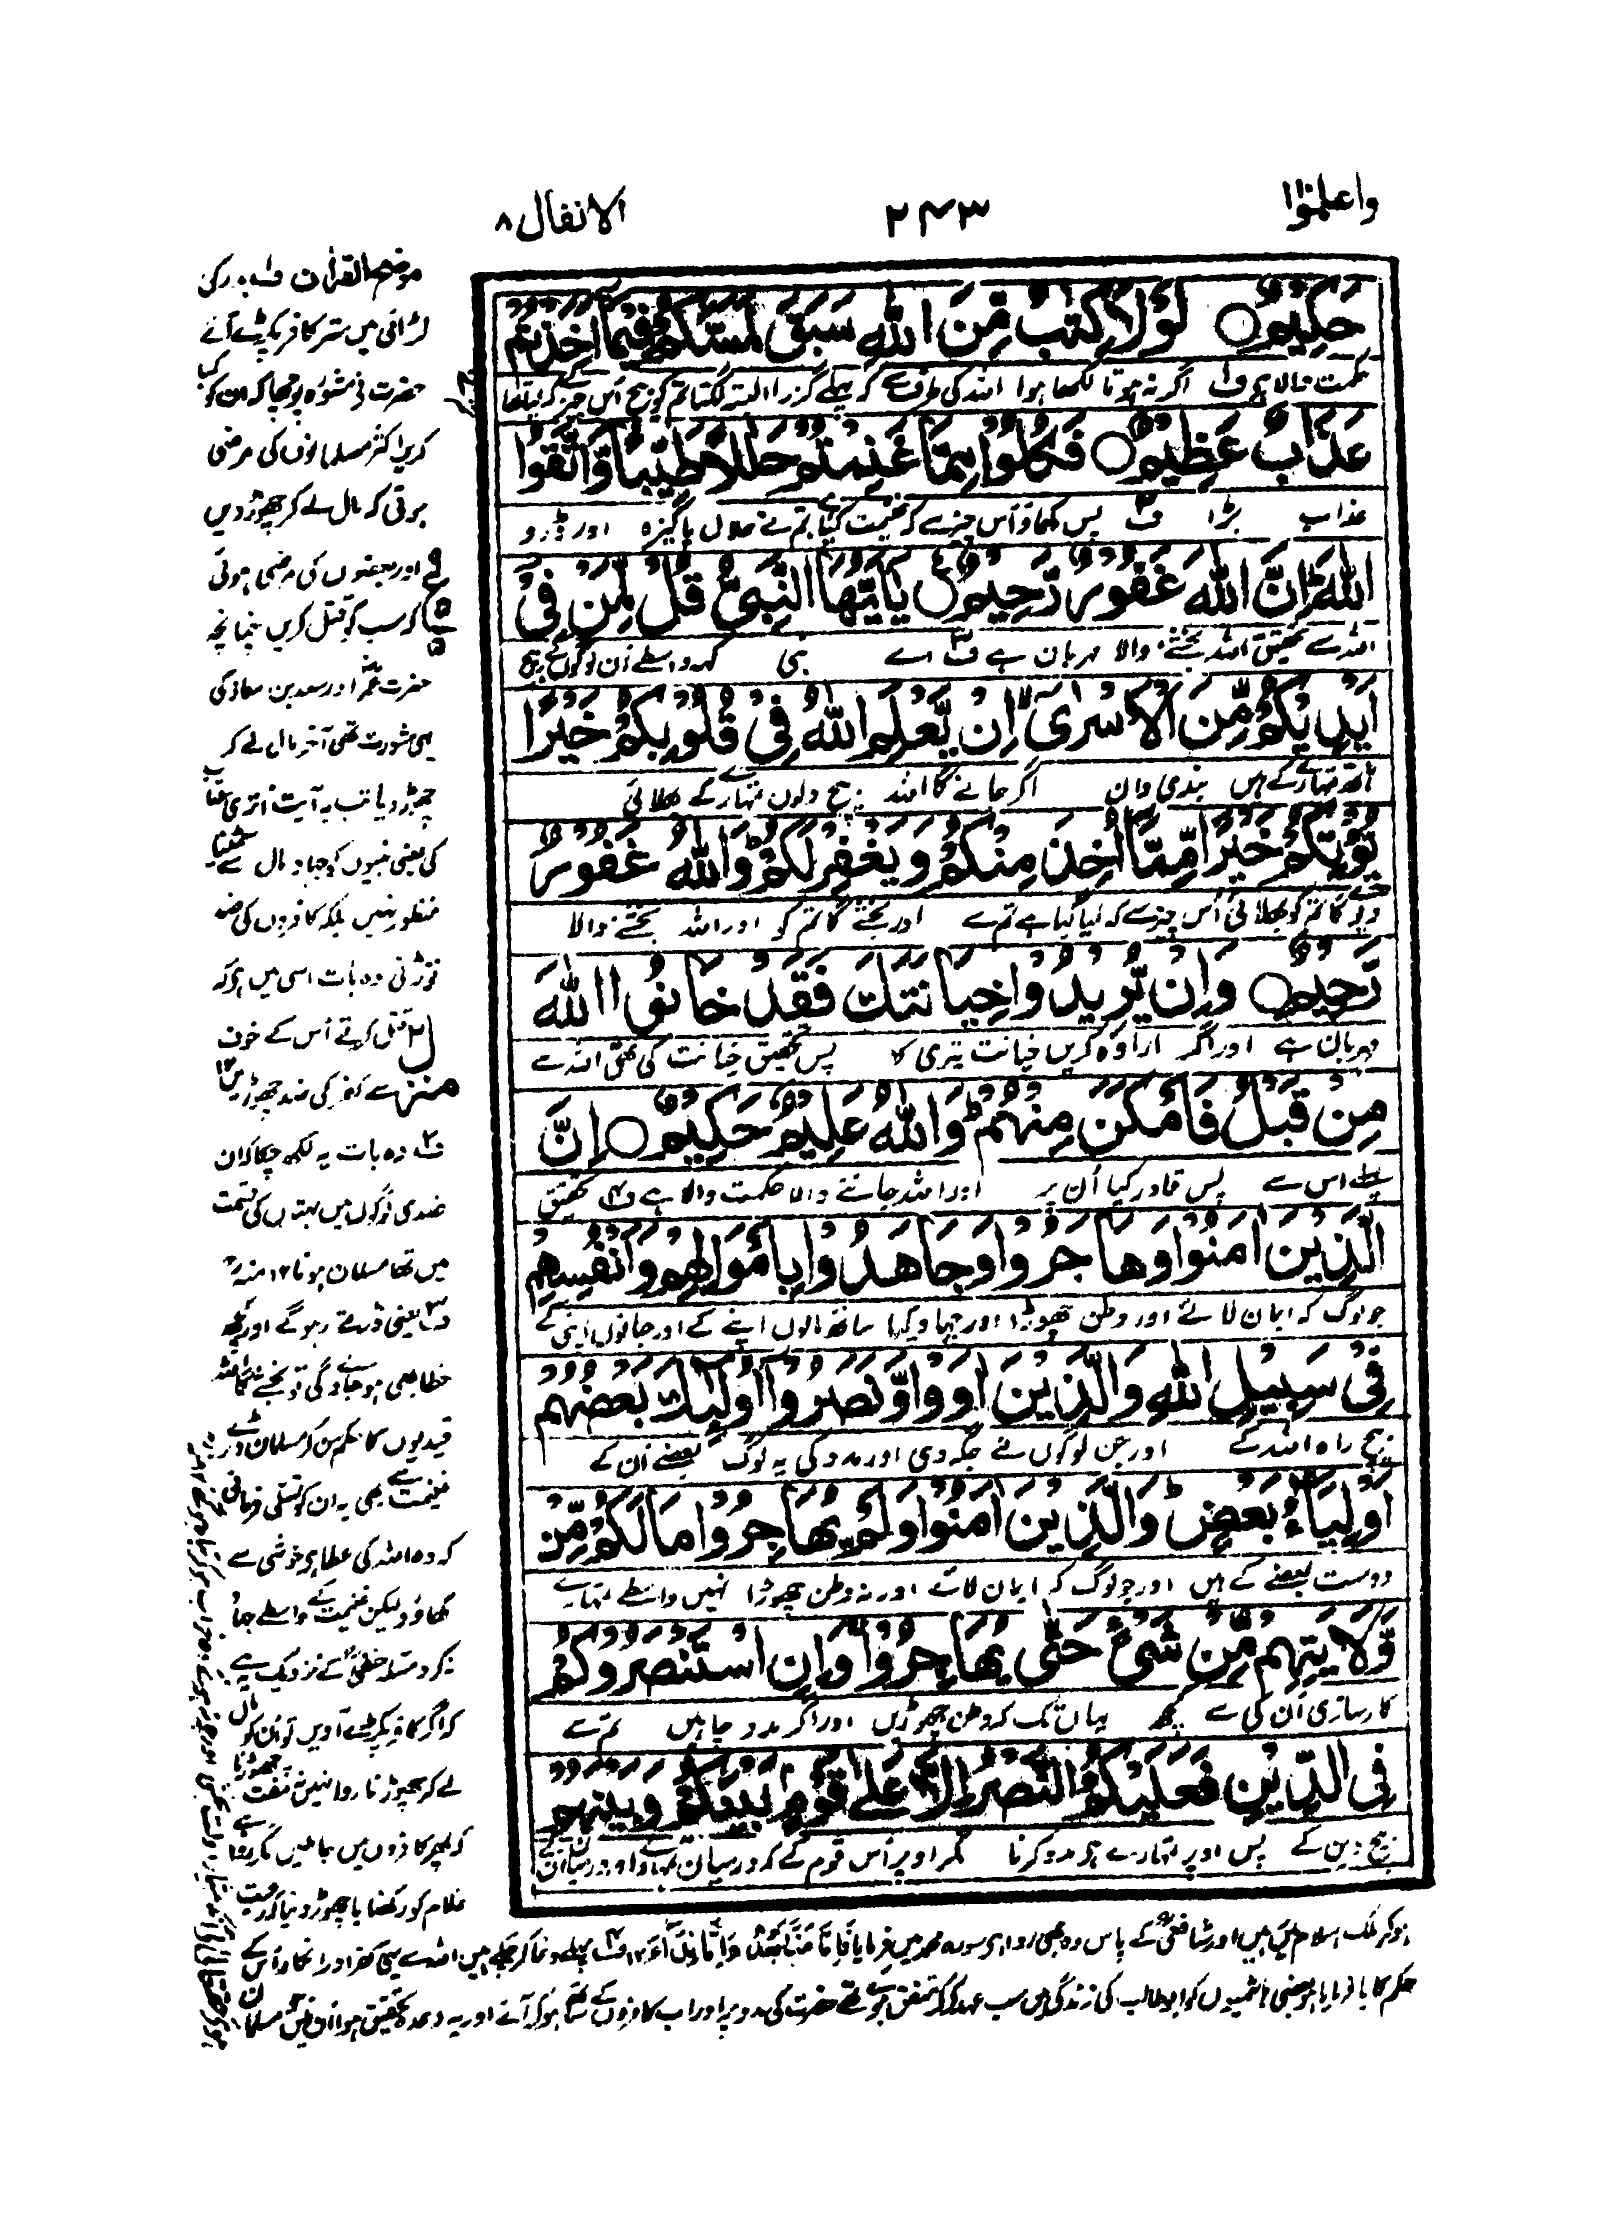 واعلموا ۲۴۳ الانفال ۸
حَكِيْمٌ ○ لَوْلَا كِتٰبٌ مِّنَ اللّٰهِ سَبَقَ لَمَسَّكُمْ فِيْمَآ اَخَذْتُمْ
حکمت والا ہی ف۱ اگر نہ ہوتا لکھا ہوا اللہ کی طرف سے کہ پہلے گزرا البتہ لگتا تم کو بیچ اُس چیز کے کہ لیا تھا
عَذَابٌ عَظِيْمٌ ○ فَكُلُوْا مِمَّا غَنِمْتُمْ حَلٰلًا طَيِّبًا وَّاتَّقُوا
عذاب بڑا ف۲ پس کھاؤ اُس چیز سے کہ غنیمت کیا تم نے حلال پاکیزہ اور ڈرو
اللّٰهَ اِنَّ اللّٰهَ غَفُوْرٌ رَّحِيْمٌ ○ يٰٓاَيُّهَا النَّبِيُّ قُلْ لِّمَنْ فِيْٓ
اللہ سے تحقیق اللہ بخشنے والا مہربان ہے ف۳ اے نبی کہہ واسطے اُن لوگوں کے بیچ
اَيْدِيْكُمْ مِّنَ الْاَسْرٰٓى اِنْ يَّعْلَمِ اللّٰهُ فِيْ قُلُوْبِكُمْ خَيْرًا
ہاتھ تمہارے کے ہیں بندی وان اگر جانے گا اللہ بیچ دلوں تمہارے کے بھلائی
يُّؤْتِكُمْ خَيْرًا مِّمَّآ اُخِذَ مِنْكُمْ وَيَغْفِرْ لَكُمْ وَاللّٰهُ غَفُوْرٌ
دیگا تم کو بھلائی اُس چیز سے کہ لیا گیا ہے تم سے اور بخشے گا تم کو اور اللہ بخشنے والا
رَّحِيْمٌ ○ وَاِنْ يُّرِيْدُوْا خِيَانَتَكَ فَقَدْ خَانُوا اللّٰهَ
مہربان ہے اور اگر ارادہ کریں خیانت تیری کا پس تحقیق خیانت کی تھی اللہ سے
مِنْ قَبْلُ فَاَمْكَنَ مِنْهُمْ وَاللّٰهُ عَلِيْمٌ حَكِيْمٌ ○ اِنَّ
پہلے اس سے پس قادر کیا اُن پر اور اللہ جاننے والا حکمت والا ہے تحقیق
الَّذِيْنَ اٰمَنُوْا وَهَاجَرُوْا وَجَاهَدُوْا بِاَمْوَالِهِمْ وَاَنْفُسِهِمْ
جو لوگ کہ ایمان لائے اور وطن چھوڑا اور جہاد کیا ساتھ مالوں اپنے کے اور جانوں اپنی کے
فِيْ سَبِيْلِ اللّٰهِ وَالَّذِيْنَ اٰوَوْا وَّنَصَرُوْٓا اُولٰٓئِكَ بَعْضُهُمْ
بیچ راہ اللہ کے اور جن لوگوں نے جگہ دی اور مدد کی یہ لوگ بعضے اُن کے
اَوْلِيَآءُ بَعْضٍ وَالَّذِيْنَ اٰمَنُوْا وَلَمْ يُهَاجِرُوْا مَا لَكُمْ مِّنْ
دوست بعضے کے ہیں اور جو لوگ کہ ایمان لائے اور نہ وطن چھوڑا نہیں واسطے تمہارے
وَّلَايَتِهِمْ مِّنْ شَيْءٍ حَتّٰى يُهَاجِرُوْا وَاِنِ اسْتَنْصَرُوْكُمْ
کارسازی اُن کی سے کچھ یہاں تک کہ وطن چھوڑیں اور اگر مدد چاہیں تم سے
فِى الدِّيْنِ فَعَلَيْكُمُ النَّصْرُ اِلَّا عَلٰى قَوْمٍۭ بَيْنَكُمْ وَبَيْنَهُمْ
بیچ دین کے پس اوپر تمہارے ہی مدد کرنا مگر اوپر اُس قوم کے کہ درمیان تمہارے اور درمیان اُن کے
موضح القرآن ف۱ بدر کی
لڑائی میں ستر کافر پکڑے آئے
حضرت نے مشورہ پوچھا کہ ان کو کیا
کریں اکثر مسلمانوں کی مرضی
ہوئی کہ مال لے کر چھوڑ دیں
اور بعضوں کی مرضی ہوئی
کہ سب کو قتل کریں چنانچہ
حضرت عمرؓ اور سعد بن معاذ کی
یہی مشورت تھی آخر مال لے کر
چھوڑ دیا تب یہ آیت اتری عتاب
کی یعنی نبیوں کو جہاد مال سمیٹنا
منظور نہیں بلکہ کافروں کی ضد
توڑنی وہ بات اسی میں ہی کہ
قتل کرتے اُس کے خوف
سے کفر کی ضد چھوڑیں ۱۲
ف۲ وہ بات یہ لکھ چکا کہ ان
قیدی لوگوں میں بہتوں کی قسمت
میں تھا مسلمان ہونا ۱۲ منہ
ف۳ یعنی ڈرتے رہو گے اور کچھ
خطا بھی ہو جاوے گی تو بخشے گا اللہ
قیدیوں کا حکم سن کر مسلمان ڈرے
غنیمت سے بھی یہ ان کو تسلی فرمائی
کہ وہ اللہ کی عطا ہی خوشی سے
کھاؤ لیکن غنیمت کے واسطے جہاد
نہ کرو مسئلہ حنفی کے نزدیک یہ ہے
کہ اگر کافر پکڑے آویں تو اُن کو مال
لے کر چھوڑنا روا نہیں نہ مفت چھوڑنا
کہ پھر کافروں میں جا ملیں مگر روا ہے
غلام کو رکھنا یا چھوڑ دینا کہ رعیت
ہو کر ملک اسلام میں رہیں اور شافعی کے پاس وہ بھی روا ہی سورہ محمد میں فرمایا فَاِمَّا مَنًّا بَعْدُ وَاِمَّا فِدَآءً ۱۲ ف۴